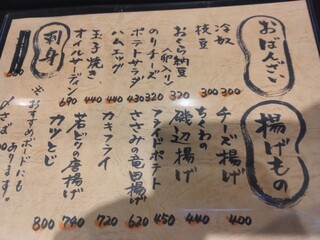 おばんざい
冷奴 300
枝豆 300
おくら納豆(卵入り) 320
のりチーズ 320
ポテトサラダ 430
ハムエッグ 440
玉子焼き 440
オイルサーデン 690
刺身
揚げもの
チーズ揚げ 400
ちくわの磯辺揚げ 440
フライドポテト 450
ささみの竜田揚げ 620
カキフライ 720
若どりの唐揚げ
カツとじ 800
※おすすめボードにも
あります。
〆さば